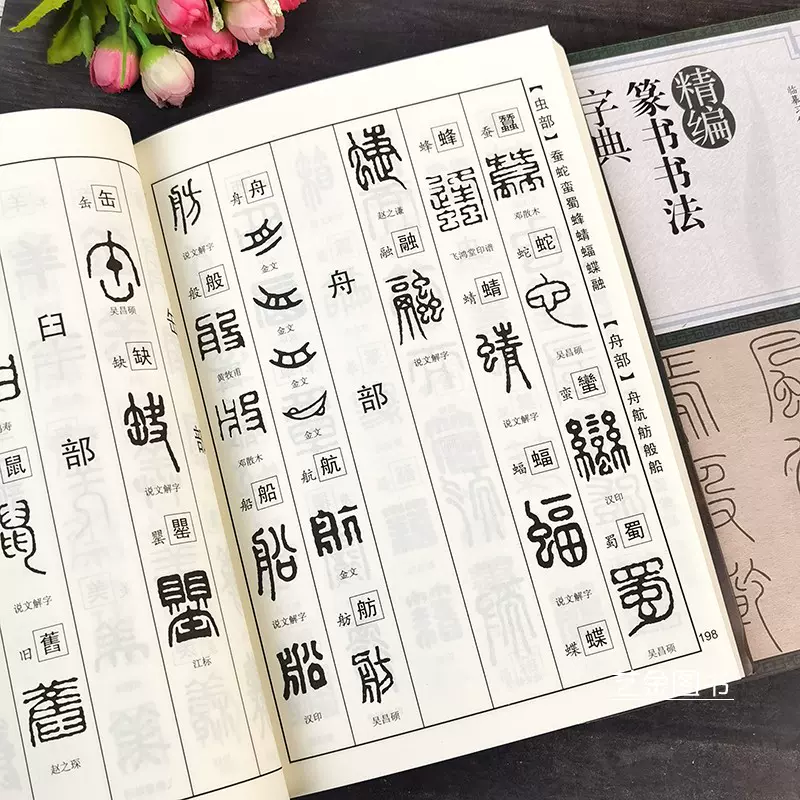 【虫部】蚕蛇蛮蜀蜂蜻蝠蝶融
【舟部】舟航舫般船
198
蚕 蠶
邓散木
蛇 蛇
吴昌硕
蛮 蠻
汉印
蜀 蜀
吴昌硕
蜂 蜂
飞鸿堂印谱
蜻 蜻
说文解字
蝠 蝠
说文解字
蝶 蝶
赵之谦
融 融
说文解字
舟部
舟 舟
金文
金文
金文
金文
航 航
金文
舫 舫
吴昌硕
说文解字
般 般
黄牧甫
邓散木
船 船
说文解字
汉印
缶 缶
吴昌硕
缺 缺
说文解字
罂 罌
江标
臼部
鼠
说文解字
旧 舊
赵之琛
精编
篆书书法
字典
图书